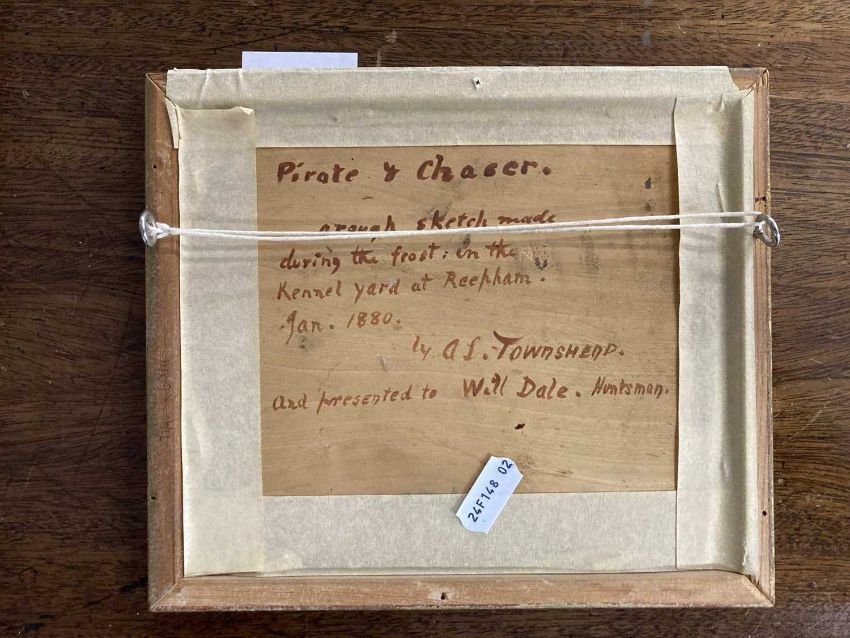 Pirate & Chaser.
a rough sketch made
during the frost: in the
Kennel yard at Reepham.
Jan. 1880.
by A L. TOWNSHEND.
and presented to Will Dale. Huntsman.
24F148 02